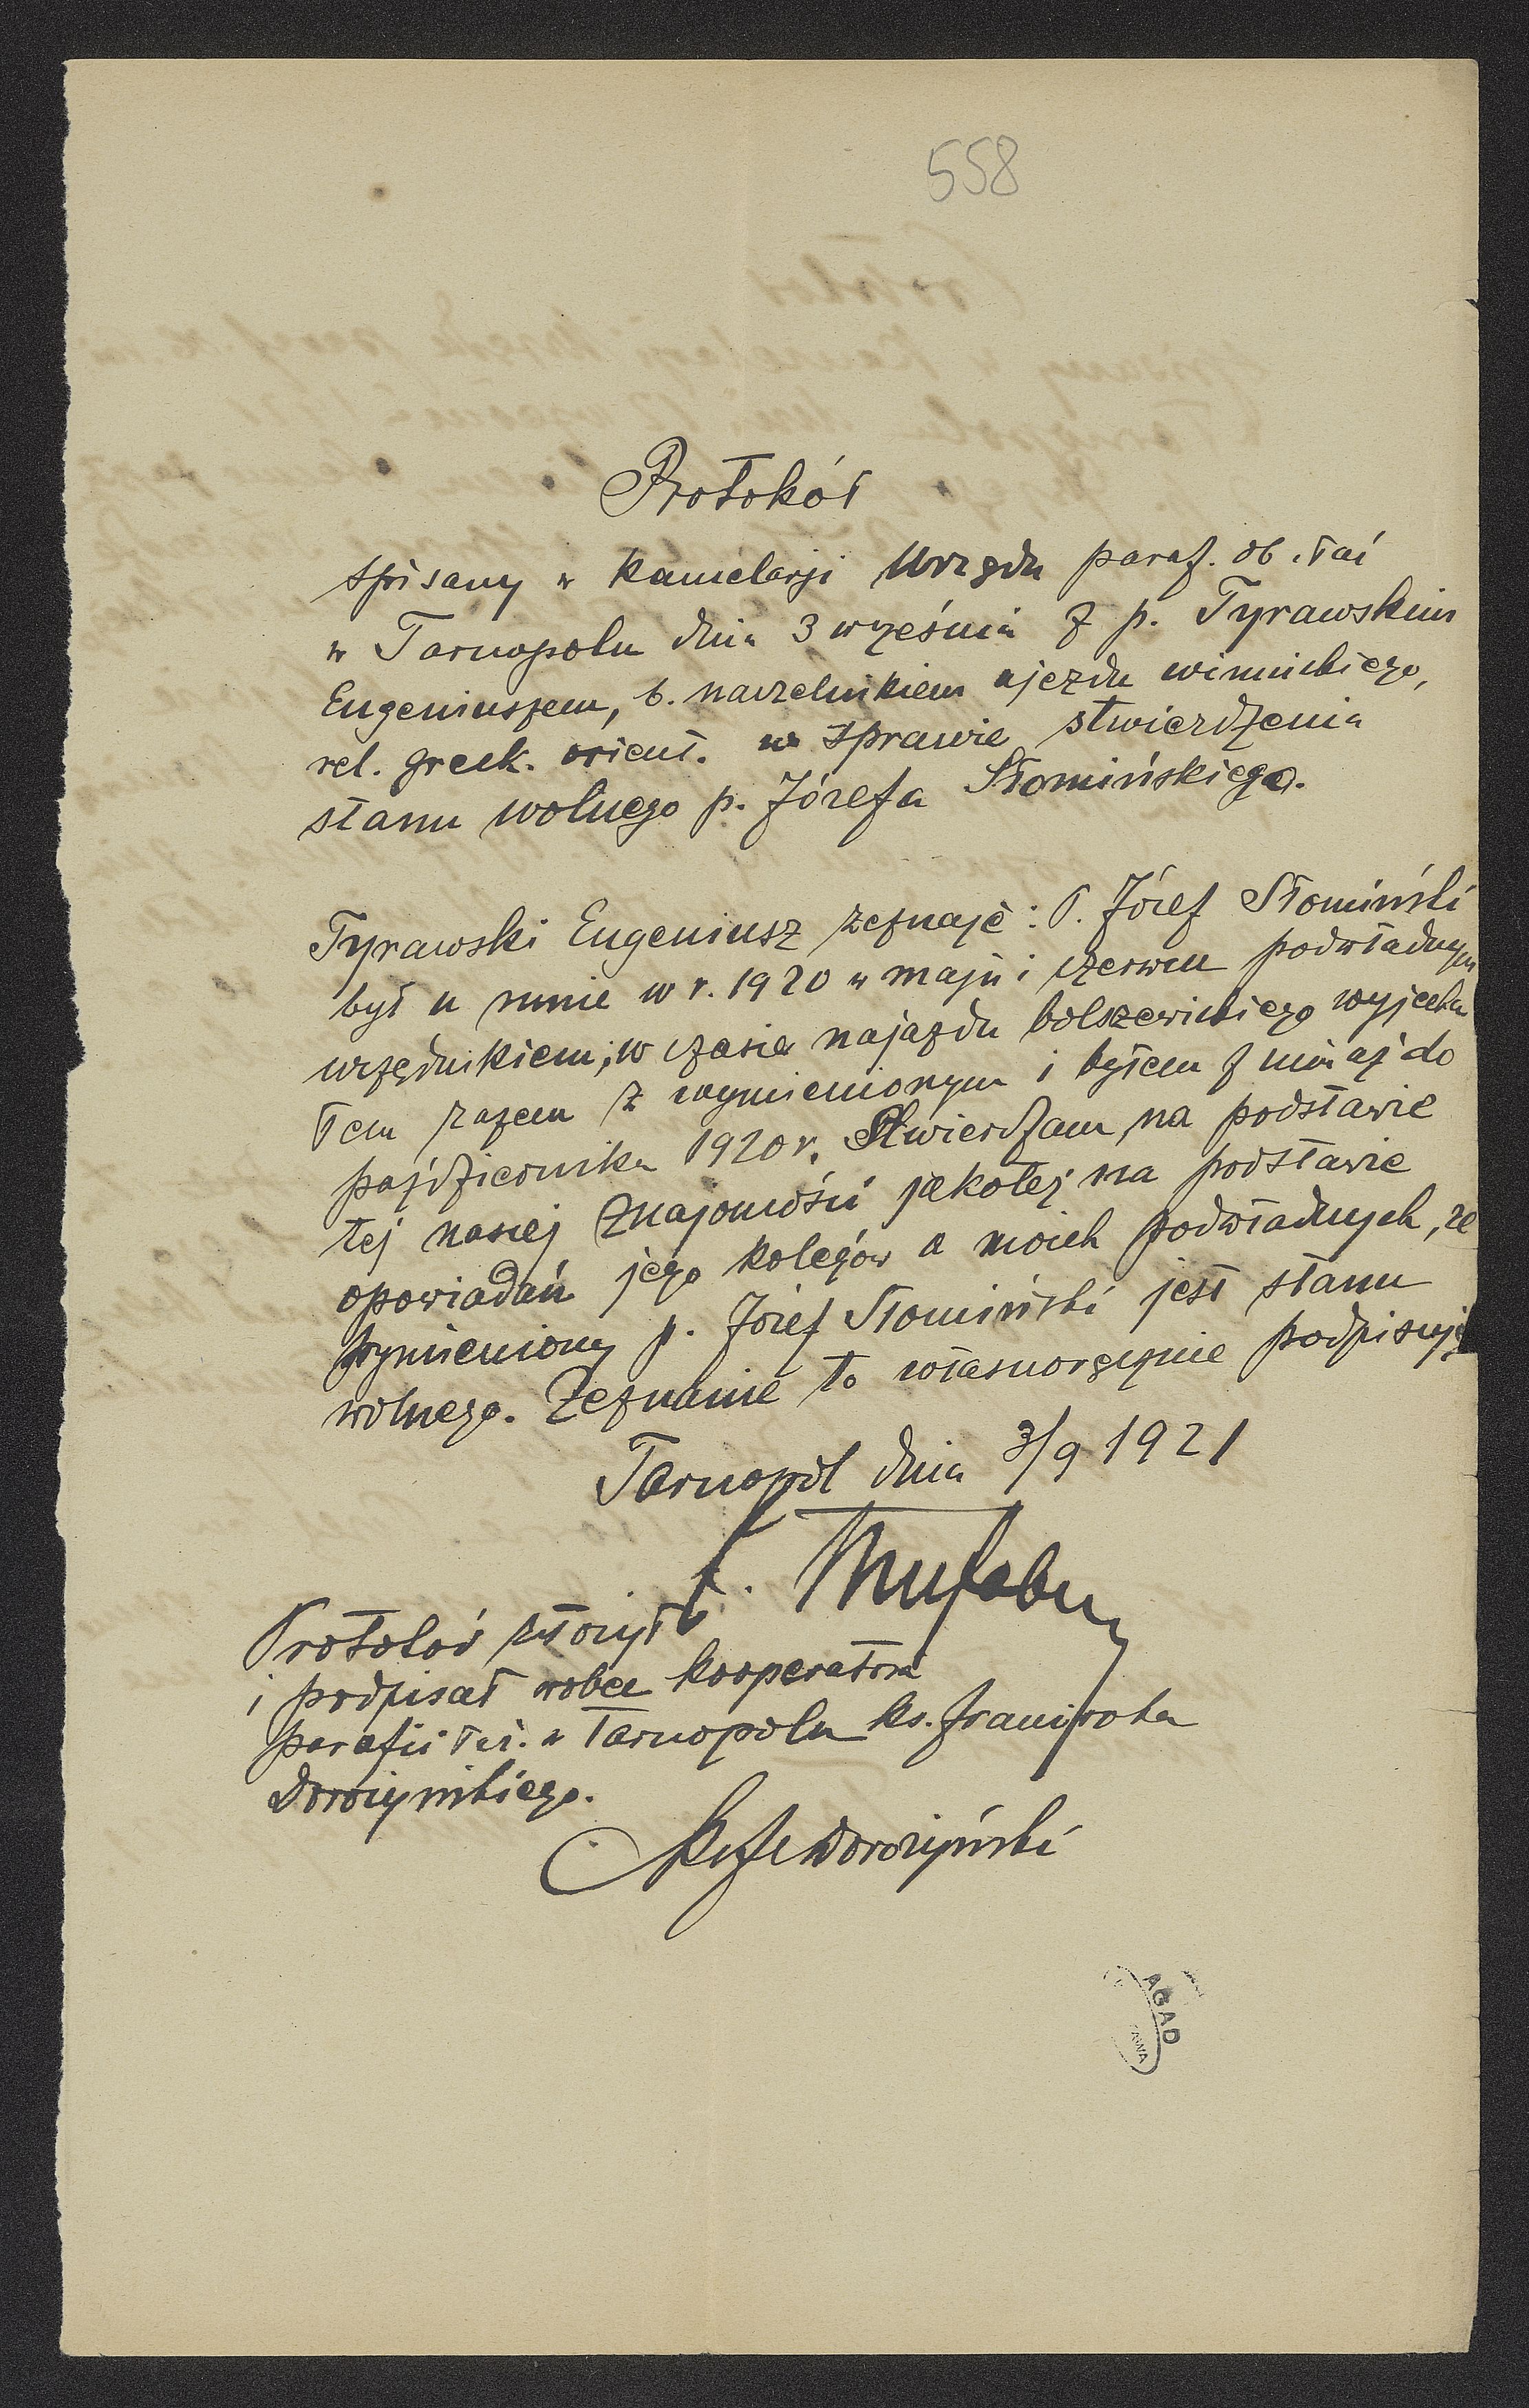 558
Protokół
spisany w kancelarji Urzędu paraf. ob. łać
w Tarnopolu dnia 3 września z p. Tyrawskim
Eugeniuszem, b. naczelnikiem ujezdu winnickiego,
rel. greck. orient. w sprawie stwierdzenia
stanu wolnego p. Józefa Słomińskiego.
Tyrawski Eugeniusz zeznaje: P. Józef Słomiński
był u mnie w r. 1920 w maju i czerwcu podwładnym
urzędnikiem; w czasie najazdu bolszewickiego wyjecha
łem razem z wymienionym i byłem z nim aż do
października 1920 r. Stwierdzam na podstawie
tej naszej znajomości jakoteż na podstawie
opowiadań jego kolegów a moich podwładnych, że
wymieniony p. Józef Słomiński jest stanu
wolnego. Zeznanie to własnoręcznie podpisuję
Tarnopol dnia 3/9 1921
Protokół złożył
i podpisał wobec kooperatora
parafii łać. w Tarnopolu ks. Franciszka
Dorożyńskiego.
Dorożyński
AGAD